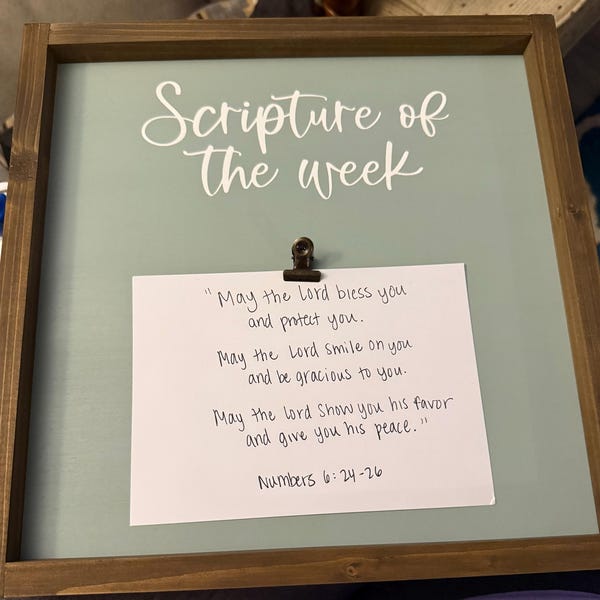 Scripture of
the week
"May the Lord bless you
and protect you.
May the Lord smile on you
and be gracious to you.
May the Lord show you his favor
and give you his peace."
Numbers 6:24-26